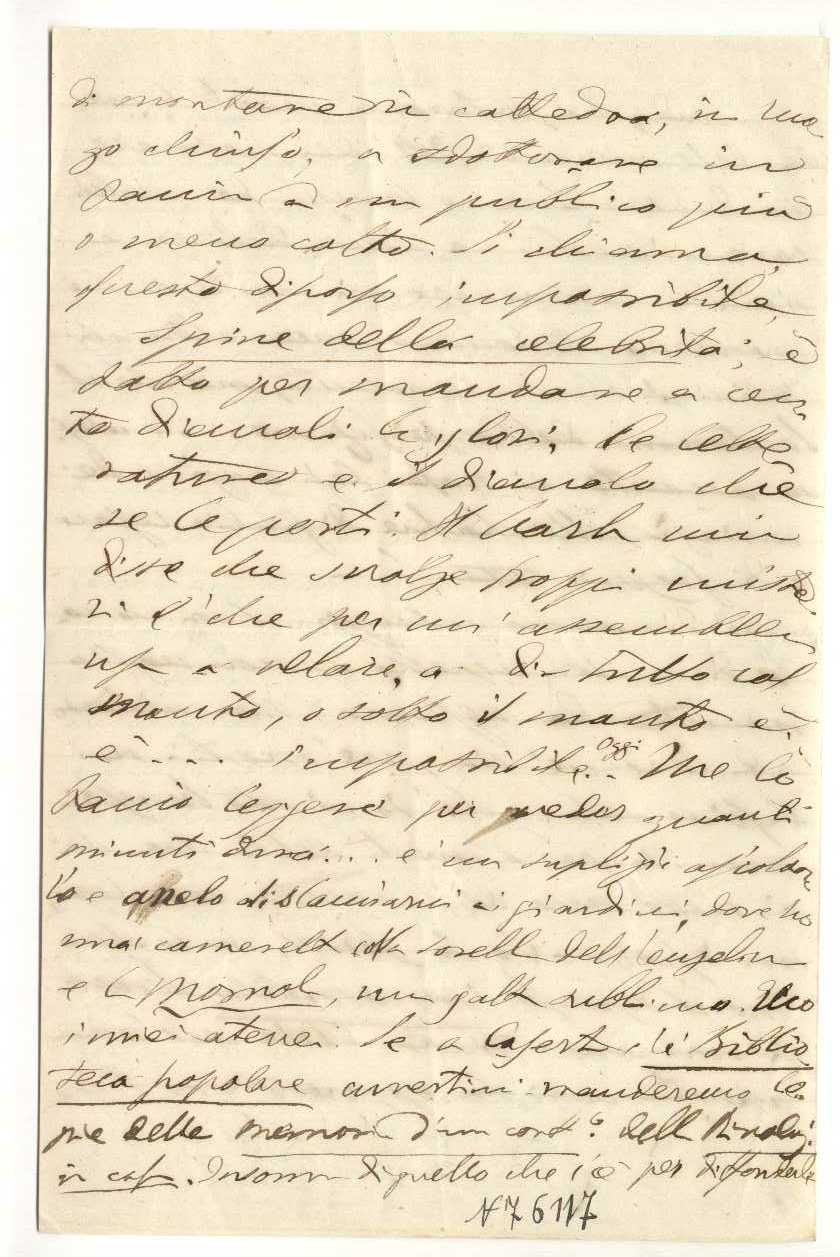 di montare in cattedra, in luo
go chiuso, a sdottorare in
faccia a un publico più
o meno colto. Si chiama
questo diporso impossibile,
Spine della celebrità; è
fatto per mandare a cen
to diavoli le glorie, le lette
rature e il diavolo che
se le porti. Il
disse che svolge troppi miste
ri e che per un'assemblea
a velare, a dir tutto col
manto, o sotto il manto è,
è .... impossibile .. Oggi Me lo
faccio leggere per veder quanti
minuti dura .... è un suplizio ascoltar
lo e anelo di slanciarmi ai giardini, dove ho
una cameretta colla sorella dell'
e la Mornol, un gatto sublimo. Uso
i miei atenei. Se a Caserta c'è Biblio
teca popolare avvertimi manderemo co
pie delle memorie d'un della
in cas. Insomma di quello che c'è per diffonderle
N 76117